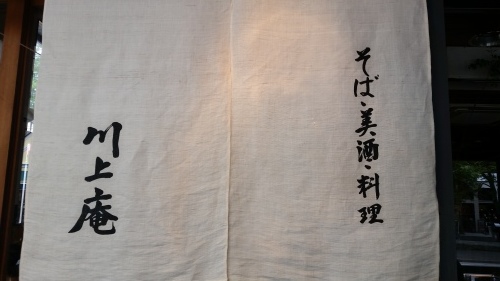 そば・美酒・料理
川上庵